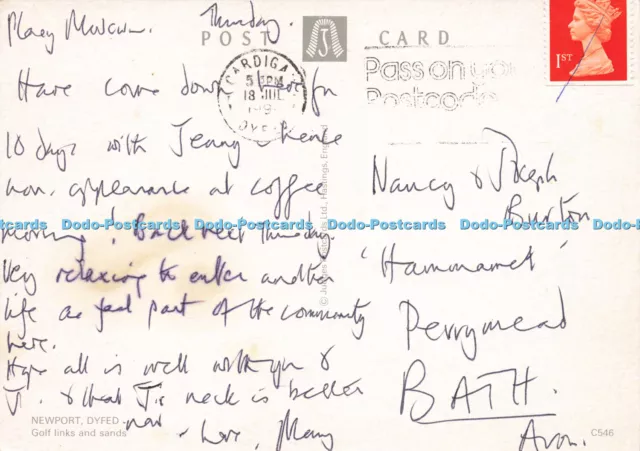 Thursday.
POST CARD
1ST
CARDIGAN
5 PM
18 JUL
DYFED
Pass on your
Postcode
Have come down here for
10 days with Jenny & hence
non. appearance at coffee
morning! Back next Thursday.
Very relaxing to enter another
life as feel part of the community
here.
Hope all is well with you &
J. & that J's neck is better
now - Love, Mary
Nancy & Joseph
Burton
'Hammamet'
Perrymead
BATH.
Avon.
© Judges Ltd., Hastings, England
NEWPORT, DYFED
Golf links and sands
C546
Dodo-Postcards Dodo-Postcards Dodo-Postcards Dodo-Postcards Dodo-Postcards